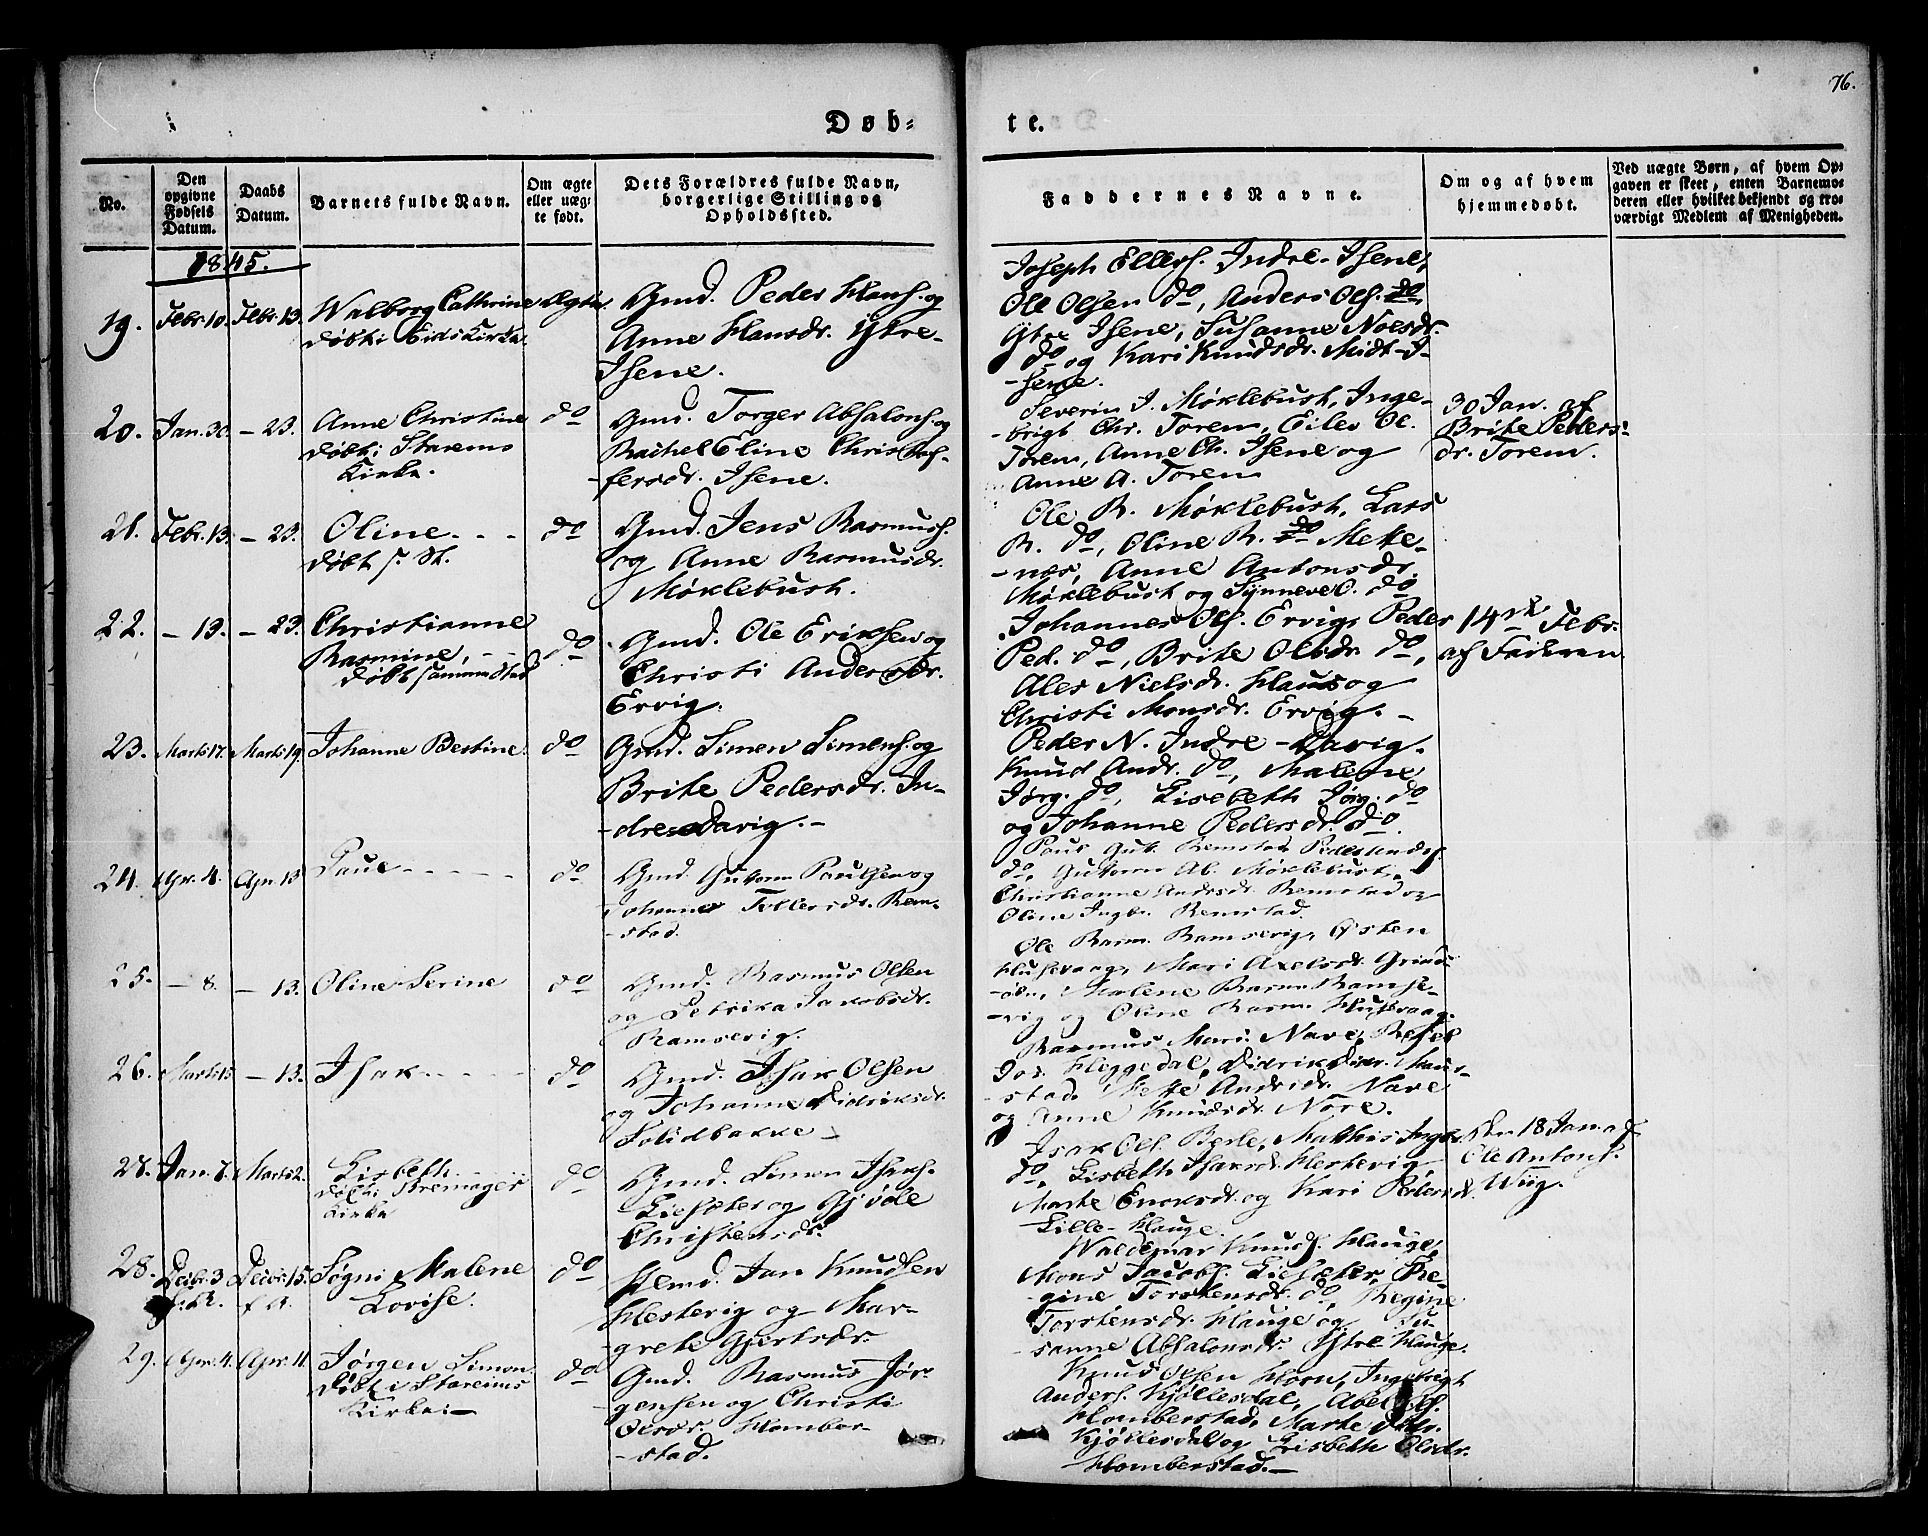 76.
Døb=
te.
No.
Den opgivne Fødsels Datum.
Daabs Datum.
Barnets fulde Navn.
Om ægte eller uægte født.
Dets Forældres fulde Navn, borgerlige Stilling og Opholdssted.
Faddernes Navne.
Om og af hvem hjemmedøbt.
Ved uægte Børn, af hvem Opgaven er skeet, enten Barnemoderen eller hvilket bekjendt og troværdigt Medlem af Menigheden.
1845.
19. Febr. 10. Febr. 13. Walborg Cathrine Ægte.
døbt i Eids Kirke.
Gmd. Peder Hans. og
Anne Hansdr. Ytre-
Isene.
Joseph Ellers. Indre-Isene,
Ole Olsen do, Anders Ols. do
Ytre Isene, Susanne Noesdr.
do og Kari Knudsdr. Midt-I-
-sene.
20. Jan. 30. - 23. Anne Christine do
døbt i Starems
Kirke.
Gmd. Torger Absalons. og
Rachel Eline Christof-
-fersdr. Isene.
Severin J. Møklebust, Inge-
-brigt Chr. Torem, Eiler Ol.
Torem, Anne Ch. Isene og
Anne A. Torem
30 Jan. af
Brite Peders-
dr. Torem.
21. Febr. 13. - 23. Oline - - - do
døbt s. St.
Gmd. Jens Rasmus.
og Anne Rasmusdr.
Møklebust.
Ole R. Møklebust, Lars
R. do, Oline R. do Mette-
-næs, Anne Antonsdr.
Møklebust og Synneve O. do
22. - 13. - 23. Christianne
Rasmine, - - do
døbt samme Sted
Gmd. Ole Eriksen og
Christi Andersdr.
Ervig.
Johannes Ols. Ervig, Peder
Ped. do, Brite Olsdr. do,
Ales Nielsdr. Haus og
Christi Monsdr. Ervig. -
14de Febr.
af Faderen
23. Marti 17. Marti 19. Johanne Bertine. do
Gmd. Simen Simens. og
Brite Pedersdr. In-
-dre=Davig. -
Peder N. Indre-Davig.
Knud Andr. do, Malene
Jørg. do, Lisebeth Jørg. do
og Johanne Pedersdr. do.
24. Apr. 4. Apr. 13 Paul - - - - - do
Gmd. Gutorm Paulsen og
Johanne Tollersdr. Rem-
-stad.
Paul Gut. Remstad, Peder
do, Gutorm Ab. Møklebust,
Christianne Andrsdr. Remstad og
Oline Ingbr. Remstad.
25. - 8. - 13. Oline Serine do
Gmd. Rasmus Olsen
og Petrika Jakobsdr.
Ramsevig.
Ole Rasm. Ramsevig, Østen
Husevaag, Mari Axelsdr. Grind-
-øen, Malene Rasm. Ramse-
-vig og Oline Rasm. Husevaag.
26. Marti 15 - 13. Isak - - - - do
Gmd. Isak Olsen
og Johanne Didriksdr.
Solidbakke -
Rasmus Mari. Nave,
Jos. Heggedal, Didrik Didr. Maur-
-stad, Mette Andrsdr. Nave
og Anne Knudsdr. Nore.
28. Jan. 8. Marti 2. Lisbeth - - do
døbt i Bremager
Kirke
Gmd. Simon Isaks.
Liesæter og Gjøle
Christensdr.
Isak Ols. Berle, Mathis Ingbr.
do, Lisbeth Isaksdr. Hestevig,
Marte Enoksdr. og Kari Pedersdr.
Lille-Hauge.
18 Jan. af
Ole Antons.
Wiig.
28. Decbr. 3 Decbr. 15. Søgni Malene do
f. A. f. A. Lovise.
Hemd. Jan Knudsen
Hestevig og Mar-
-grete Gjertsdr.
Waldemar Knuds. Hauge,
Mons Jacobs. Liesæter, Re-
-gine Torstensdr. do, Regine
Torstensdr. Hauge og Su-
-sanne Absalonsdr. Ytre Hauge.
29. Apr. 4. Apr. 11. Jørgen Simon. do
døbt i Stareims
Kirke: -
Gmd. Rasmus Jør-
gensen og Christi
Olsdr. Homber-
-stad.
Knud Olsen Horn, Ingebrigt
Anders. Kjøllesdal, Abel
Homberstad, Marte
Kjøllesdal og Lisbeth Olsdr.
Homberstad. -